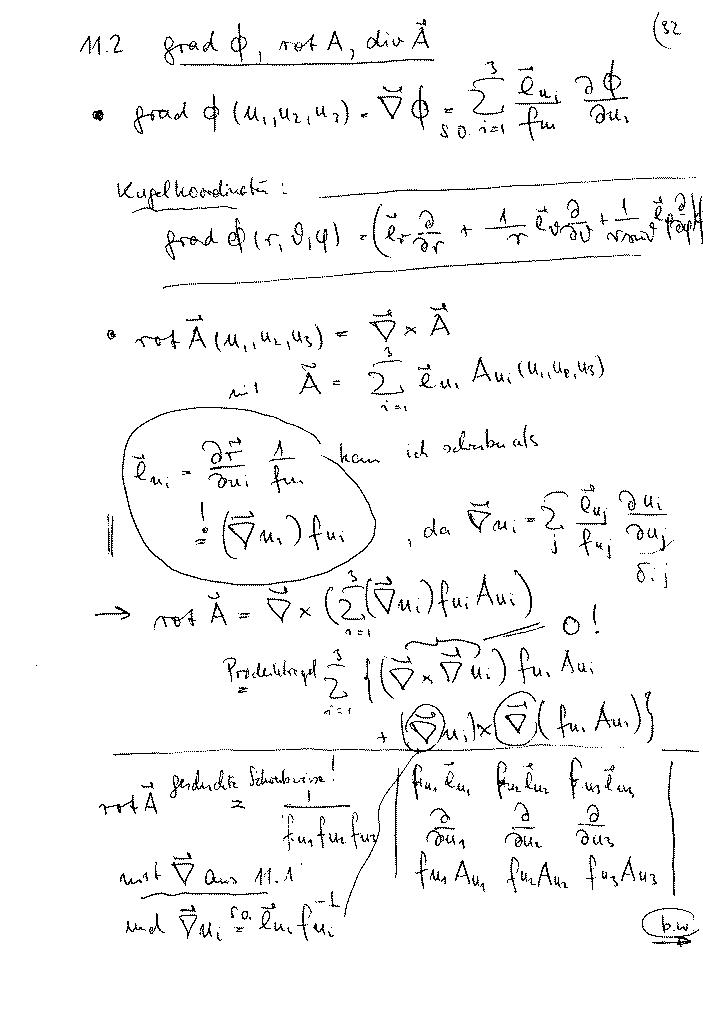 (32
11.2 grad ϕ, rot A, div A⃗
• grad ϕ(u₁,u₂,u₃) = ∇⃗ϕ =_{s.o.} Σ_{i=1}^{3} e⃗_{u_i}/f_{u_i} ∂ϕ/∂u_i
Kugelkoordinaten:
grad ϕ(r,ϑ,φ) = (e⃗_r ∂/∂r + 1/r e⃗_ϑ ∂/∂ϑ + 1/(r sinϑ) e⃗_φ ∂/∂φ)ϕ
• rot A⃗(u₁,u₂,u₃) = ∇⃗ × A⃗
mit A⃗ = Σ_{i=1}^{3} e⃗_{u_i} A_{u_i}(u₁,u₂,u₃)
e⃗_{u_i} = ∂r⃗/∂u_i 1/f_{u_i} kann ich schreiben als
|| != (∇⃗u_i) f_{u_i}, da ∇⃗u_i = Σ_j e⃗_{u_j}/f_{u_j} ∂u_i/∂u_j
δ_{ij}
→ rot A⃗ = ∇⃗ × (Σ_{i=1}^{3} (∇⃗u_i) f_{u_i} A_{u_i})
0!
Produktregel = Σ_{i=1}^{3} {(∇⃗ × ∇⃗u_i) f_{u_i} A_{u_i}
+ (∇⃗u_i) × ∇⃗(f_{u_i} A_{u_i})}
rot A⃗ geschickte Schreibweise! = 1/(f_{u₁} f_{u₂} f_{u₃}) | f_{u₁}e⃗_{u₁} f_{u₂}e⃗_{u₂} f_{u₃}e⃗_{u₃}
∂/∂u₁ ∂/∂u₂ ∂/∂u₃
f_{u₁}A_{u₁} f_{u₂}A_{u₂} f_{u₃}A_{u₃} |
mit ∇⃗ aus 11.1
und ∇⃗u_i =^{s.o.} e⃗_{u_i} f_{u_i}^{-1}
b.w.